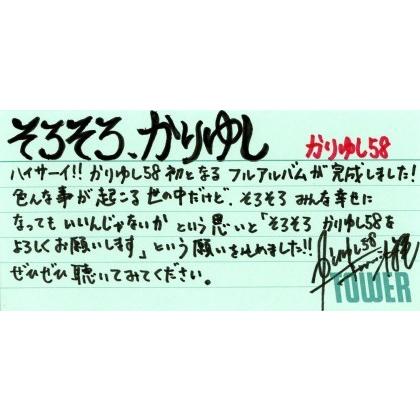 そろそろ、かりゆし
かりゆし58
ハイサーイ!! かりゆし58 初となる フルアルバムが完成しました!
色んな事が起こる世の中だけど、そろそろ みんな幸せに
なってもいいんじゃないか という思いと「そろそろ かりゆし58を
よろしくお願いします」という願いを込めました!!
ぜひぜひ聴いてみてください。
かりゆし58
TOWER